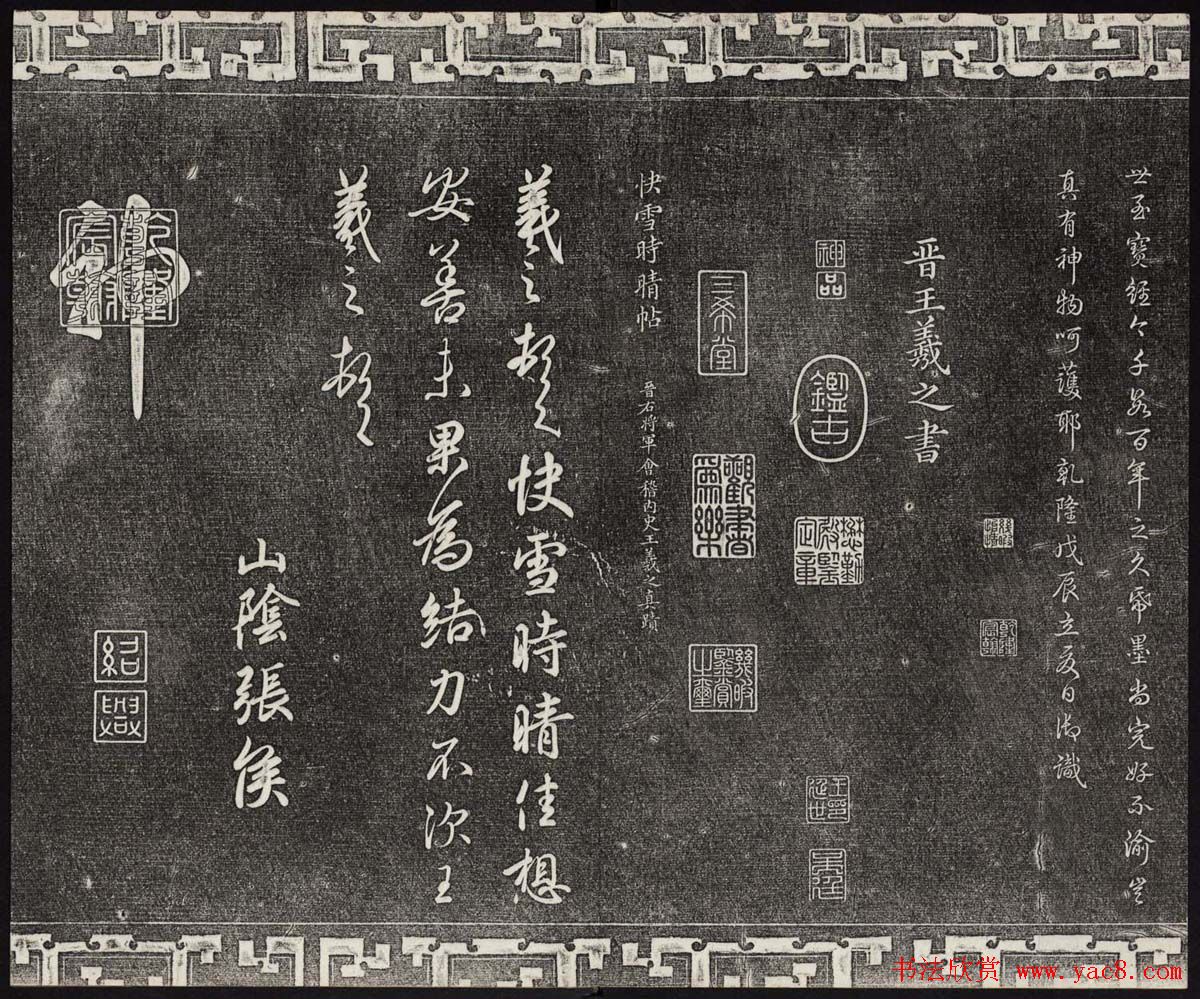 世至寶經今千數百年之久帋墨尚完好不渝豈
真有神物呵護耶乾隆戊辰立夏日御識
乾隆宸翰
晉王羲之書
神品
鑑古
懋勤殿鑒定章
三希堂
觀書為樂
幾暇鑒賞之璽
快雪時晴帖
晉右將軍會稽內史王羲之真蹟
羲之頓首快雪時晴佳想
安善未果為結力不次王
羲之頓首
山陰張侯
神
乾隆宸翰
紹興
书法欣赏 www.yac8.com